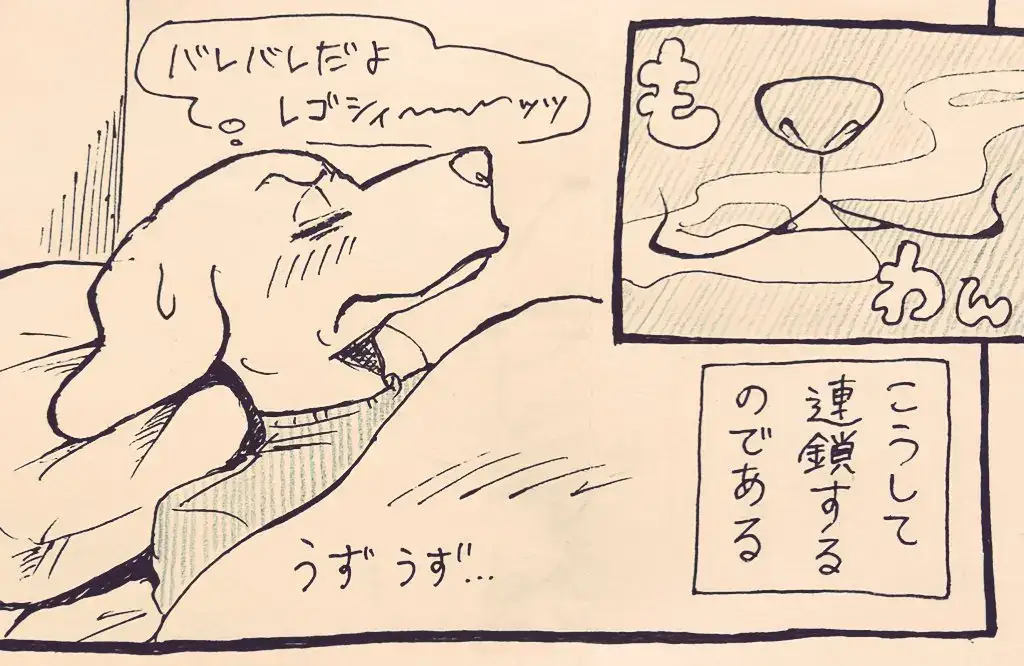 も
わん
バレバレだよ
レゴシィ〜〜〜ッッ
うず うず…
こうして
連鎖する
のである